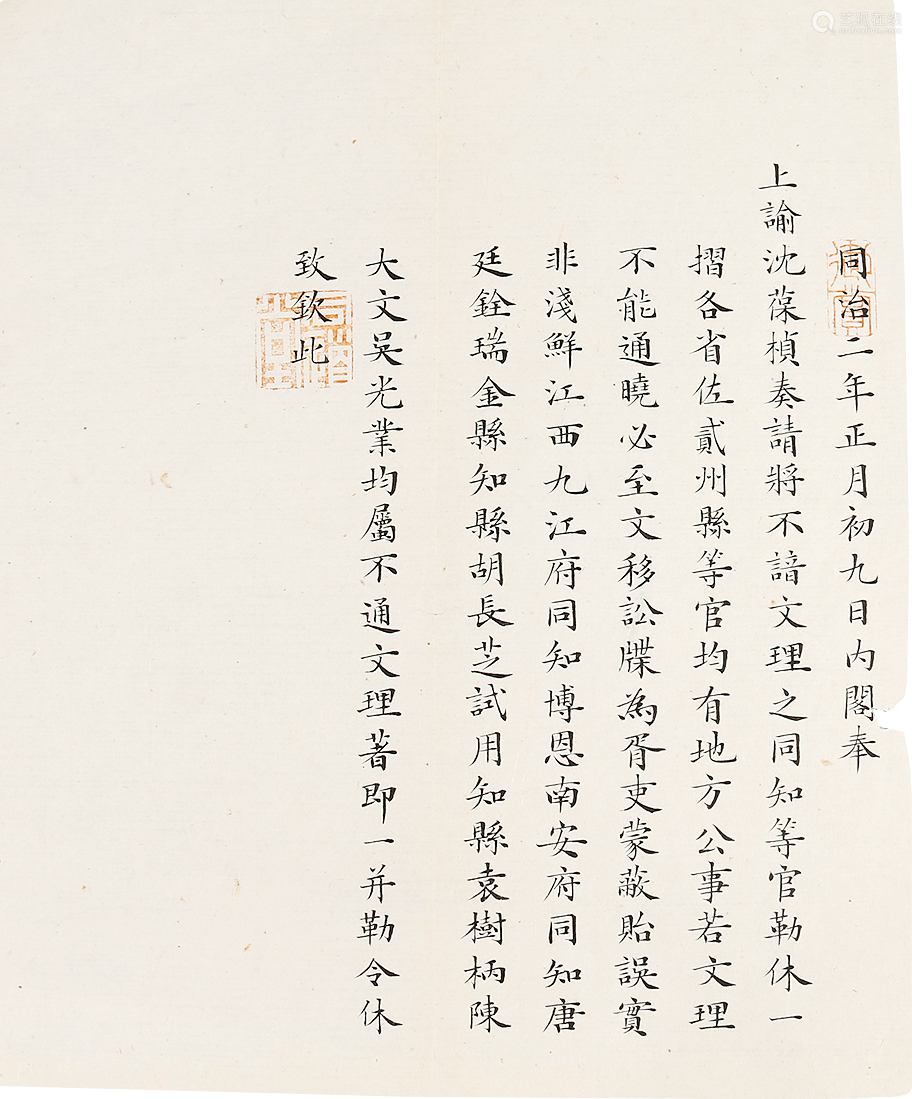 同治二年正月初九日內閣奉
上諭沈葆楨奏請將不諳文理之同知等官勒休一
摺各省佐貳州縣等官均有地方公事若文理
不能通曉必至文移訟牒為胥吏蒙蔽貽誤實
非淺鮮江西九江府同知博恩南安府同知唐
廷銓瑞金縣知縣胡長芝試用知縣袁樹柄陳
大文吳光業均屬不通文理著即一并勒令休
致欽此
御賞